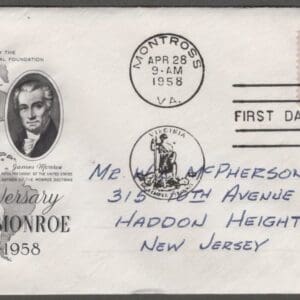 Y THE
AL FOUNDATION
James Monroe
PRESIDENT OF THE UNITED STATES
AUTHOR OF THE MONROE DOCTRINE
versary
MONROE
1958
MONTROSS
APR 28
9-AM
1958
VA.
FIRST DA
VIRGINIA
MR. McPHERSON
315 AVENUE
HADDON HEIGHT
NEW JERSEY